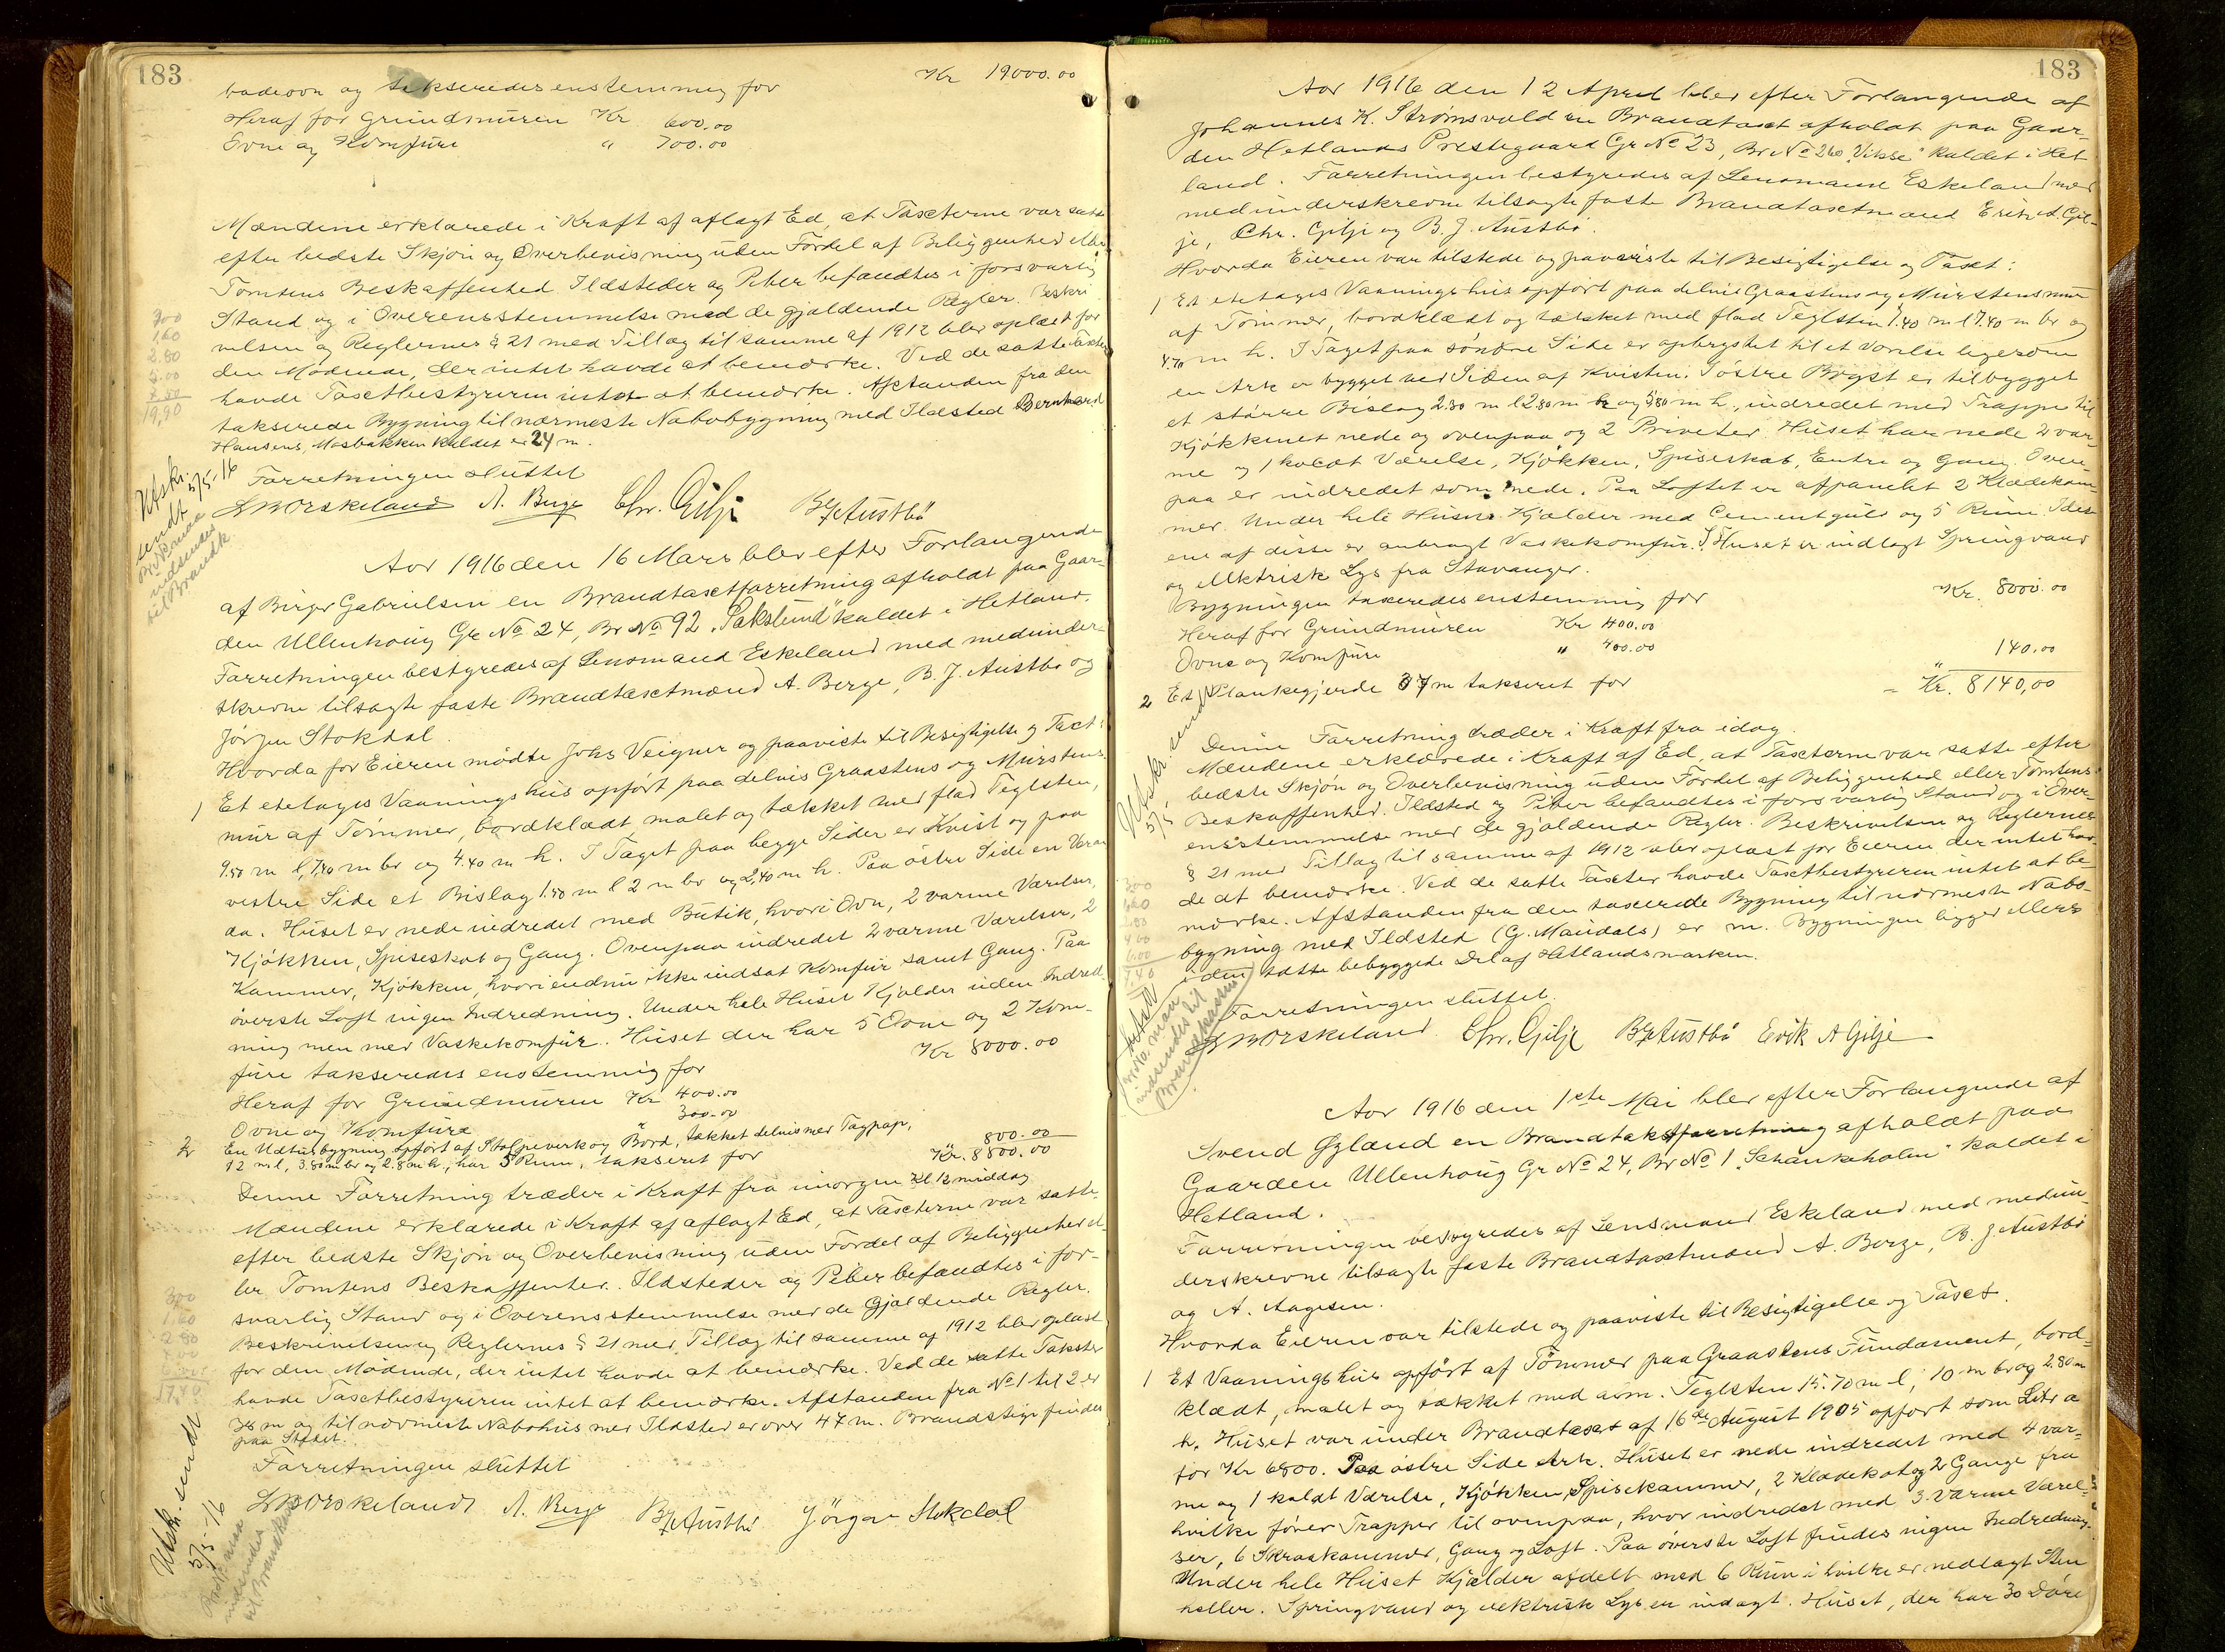 183
badeovn og takseredes enstemmig for Kr 19000.00
Heraf for Grundmuren Kr 600.00
Ovne og Komfüre " 700.00
Mændene erklærede i Kraft af aflagt Ed, at Taxterne var satte
efter bedste Skjøn og Overbevisning uden Fordel af Beliggenhed eller
Tomtens Beskaffenhed. Ildsteder og Piber befandtes i forsvarlig
Stand og i Overensstemmelse med de gjældende Regler. Beskri
velsen og Reglernes § 21 med Tillæg til samme af 1912 blev oplæst for
den Mødende, der intet havde at bemærke. Ved de satte Taxter
havde Taxtbestyreren intet at bemærke. Afstanden fra den
takserede Bygning til nærmeste Nabobygning med Ildsted Bernhard
Hansens, Mosbakken kaldet er 24 m.
300
1,60
2.80
19,90
Forretningen sluttet
Utskr. sendt 5/5-16
A. Berge Chr. Gilje B J Austbø
Aar 1916 den 16 Mars blev efter Forlangende
af Birger Gabrielsen en Brandtaxtforretning afholdt paa Gaar-
den Ullenhoug Gr No 24, Br No 92 "Sakslund" kaldet i Hetland.
Forretningen bestyredes af Lensmand Eskeland med medunder-
skrevne tilsagte faste Brandtaxtmænd A. Berge, B. J. Austbø og
Jørgen Stokdal.
Hvorda for Eieren mødte Johs Veigner og paaviste til Besigtigelse og Taxt:
1 Et etetages Vaaningshus opført paa delvis Graastens og Murstens
mur af Tømmer, bordklædt, malet og tækket med flad Teglsten,
9.50 m l, 7,70 m br og 4.40 m h. I Taget paa begge Sider er Kvist og paa
vestre Side et Bislag 1.50 m l 2 m br og 2,40 m h. Paa østre Side en Veran
da. Huset er nede indredet med Butik, hvori Ovn, 2 varme Værelser,
Kjøkken, Spiseskab og Gang. Ovenpaa indredet 2 varme Værelser, 2
Kammer, Kjøkken, hvori endnu ikke indsat Komfür samt Gang. Paa
øverste Loft ingen Indredning. Under hele Huset Kjælder uden Indred
ning men med Vaskekomfür. Huset der har 5 Ovne og 2 Kom-
füre takseredes enstemmig for Kr 8000.00
Heraf for Grundmuren Kr 400.00
Ovne og Komfüre " 300.00
2 En Udhusbygning opført af Stolpeverk og Bord, tækket delvis med Tagpap,
12 m l, 3.80 m br og 2.8 m h, har 5 Rum, takseret for 800.00
Kr. 8800.00
Denne Forretning træder i Kraft fra imorgen Kl 12 middag
Mændene erklærede i Kraft af aflagt Ed, at Taxterne var satte
efter bedste Skjøn og Overbevisning uden Fordel af Beliggenhed el-
ler Tomtens Beskaffenhed. Ildsteder og Piber befandtes i for-
svarlig Stand og i Overensstemmelse med de gjældende Regler.
Beskrivelsen og Reglernes § 21 med Tillæg til samme af 1912 blev oplæst
for den Mødende, der intet havde at bemærke. Ved de satte Takster
havde Taxtbestyreren intet at bemærke. Afstanden fra No 1 til 2 er
m og til nærmeste Nabohus med Ildsted er over 47 m. Brandstige findes
paa Stedet.
300
1,60
2 80
17,40
Forretningen sluttet
Utskr. sendt 5/5-16
A. Berge B J Austbø Jörgen Stokdal
183
Aar 1916 den 12 April blev efter Forlangende af
Johannes K. Strømsvold en Brandtaxt afholdt paa Gaar-
den Hetlands Prestegaard Gr No 23, Br No 260 "Vikse" kaldet i Het
land. Forretningen bestyredes af Lensmand Eskeland med
medunderskrevne tilsagte faste Brandtaxtmænd Erik A. Gil-
je, Chr. Gilje og B. J. Austbø.
Hvorda Eieren var tilstede og paaviste til Besigtigelse og Taxt:
1 Et etetages Vaaningshus opført paa delvis Graastens og Murstensmur
af Tømmer, bordklædt og tækket med flad Teglsten 7.40 m l 7.40 m br og
4.70 m h. I Taget paa søndre Side er opbrystet til et Værelse ligesom
en Ark er bygget ved Siden af Kvisten. I østre Bryst er tilbygget
et større Bislag 2.30 m l 2.80 m br og 5.80 m h, indredet med Trappe til
Kjøkkenet nede og ovenpaa og 2 Priveter. Huset har nede 2 var-
me og 1 koldt Værelse, Kjøkken, Spiseskab, Entre og Gang. Oven-
paa er indredet som nede. Paa Loftet er afpanelt 2 Klædekam-
mer. Under hele Huset Kjælder med Cementgulv og 5 Rum. I det
ene af disse er anbragt Vaskekomfür. I Huset er indlagt Springvand
og elektrisk Lys fra Stavanger.
Bygningen taxeredes enstemmig for Kr. 8000.00
Heraf for Grundmuren Kr 400.00
Ovne og Komfüre " 400.00
2 Et Plankegjerde 37 m takseret for " 140.00
= Kr. 8140,00
Denne Forretning træder i Kraft fra idag.
Mændene erklærede i Kraft af Ed, at Taxterne var satte efter
bedste Skjøn og Overbevisning uden Fordel af Beliggenhed eller Tomtens
Beskaffenhed. Ildsted og Piber befandtes i forsvarlig Stand og i Over-
ensstemmelse med de gjældende Regler. Beskrivelsen og Reglernes
§ 21 med Tillæg til samme af 1912 blev oplæst for Eieren der intet hav-
de at bemærke. Ved de satte Taxter havde Taxtbestyreren intet at be
mærke. Afstanden fra den taxerede Bygning til nærmeste Nabo-
bygning med Ildsted (G. Mandals) er m. Bygningen ligger ellers
i den tætte bebyggede Del af Hetlandsmarken.
Forretningen sluttet.
Chr. Gilje B J Austbø Erik A Gilje
Aar 1916 den 1ste Mai blev efter Forlangende af
Svend Øgland en Brandtakstforretning afholdt paa
Gaarden Ullenhoug Gr No 24, Br No 1 "Schankeholen" kaldet i
Hetland.
Forretningen bestyredes af Lensmand Eskeland med medun-
derskrevne tilsagte faste Brandtaxtmænd A. Berge, B. J Austbø
og A. Aagesen.
Hvorda Eieren var tilstede og paaviste til Besigtigelse og Taxt.
1 Et Vaaningshus opført af Tømmer paa Graastens Fundament, bord-
klædt, malet og tækket med alm. Teglsten 15.70 m l, 10 m br og 2.80 m
h. Huset var under Brandtaxt af 16de August 1905 opført som Litr a
for Kr 6800. Paa østre Side Ark. Huset er nede indredet med 4 var-
me og 1 koldt Værelse, Kjøkken, Spisekammer, 2 Klædekot og 2 Gange fra
hvilke fører Trapper til ovenpaa, hvor indredet med 3 varme Værel-
ser, 6 Skraakammer, Gang og Loft. Paa øverste Loft findes ingen Indredning.
Under hele Huset Kjælder afdelt med 6 Rum i hvilke er nedlagt Sten
heller. Springvand og elektrisk Lys er indlagt. Huset, der har 30 Døre